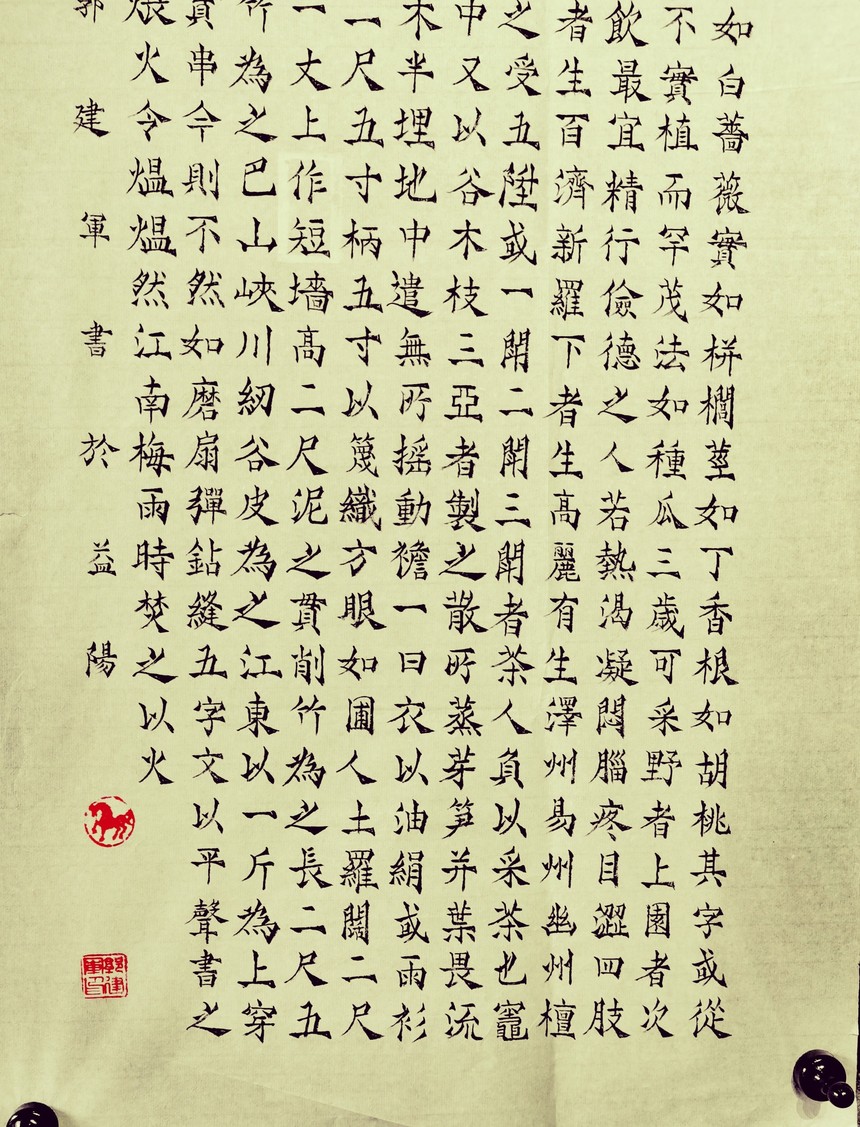 如白薔薇實如栟櫚莖如丁香根如胡桃其字或從
不實植而罕茂法如種瓜三歲可采野者上園者次
飲最宜精行儉德之人若熱渴凝悶腦疼目澀四肢
者生百濟新羅下者生高麗有生澤州易州幽州檀
之受五陞或一閗二閗三閗者茶人負以采茶也竈
中又以谷木枝三亞者製之散所蒸芽笋并葉畏流
木半埋地中遣無所摇動襜一曰衣以油絹或雨衫
一尺五寸柄五寸以篾織方眼如圃人土羅闊二尺
一丈上作短墻高二尺泥之貫削竹為之長二尺五
竹為之巴山峽川紉谷皮為之江東以一斤為上穿
串今則不然如磨扇彈鉆縫五字文以平聲書之
火令煴煴然江南梅雨時焚之以火
郭建軍書於益陽
郭建軍印